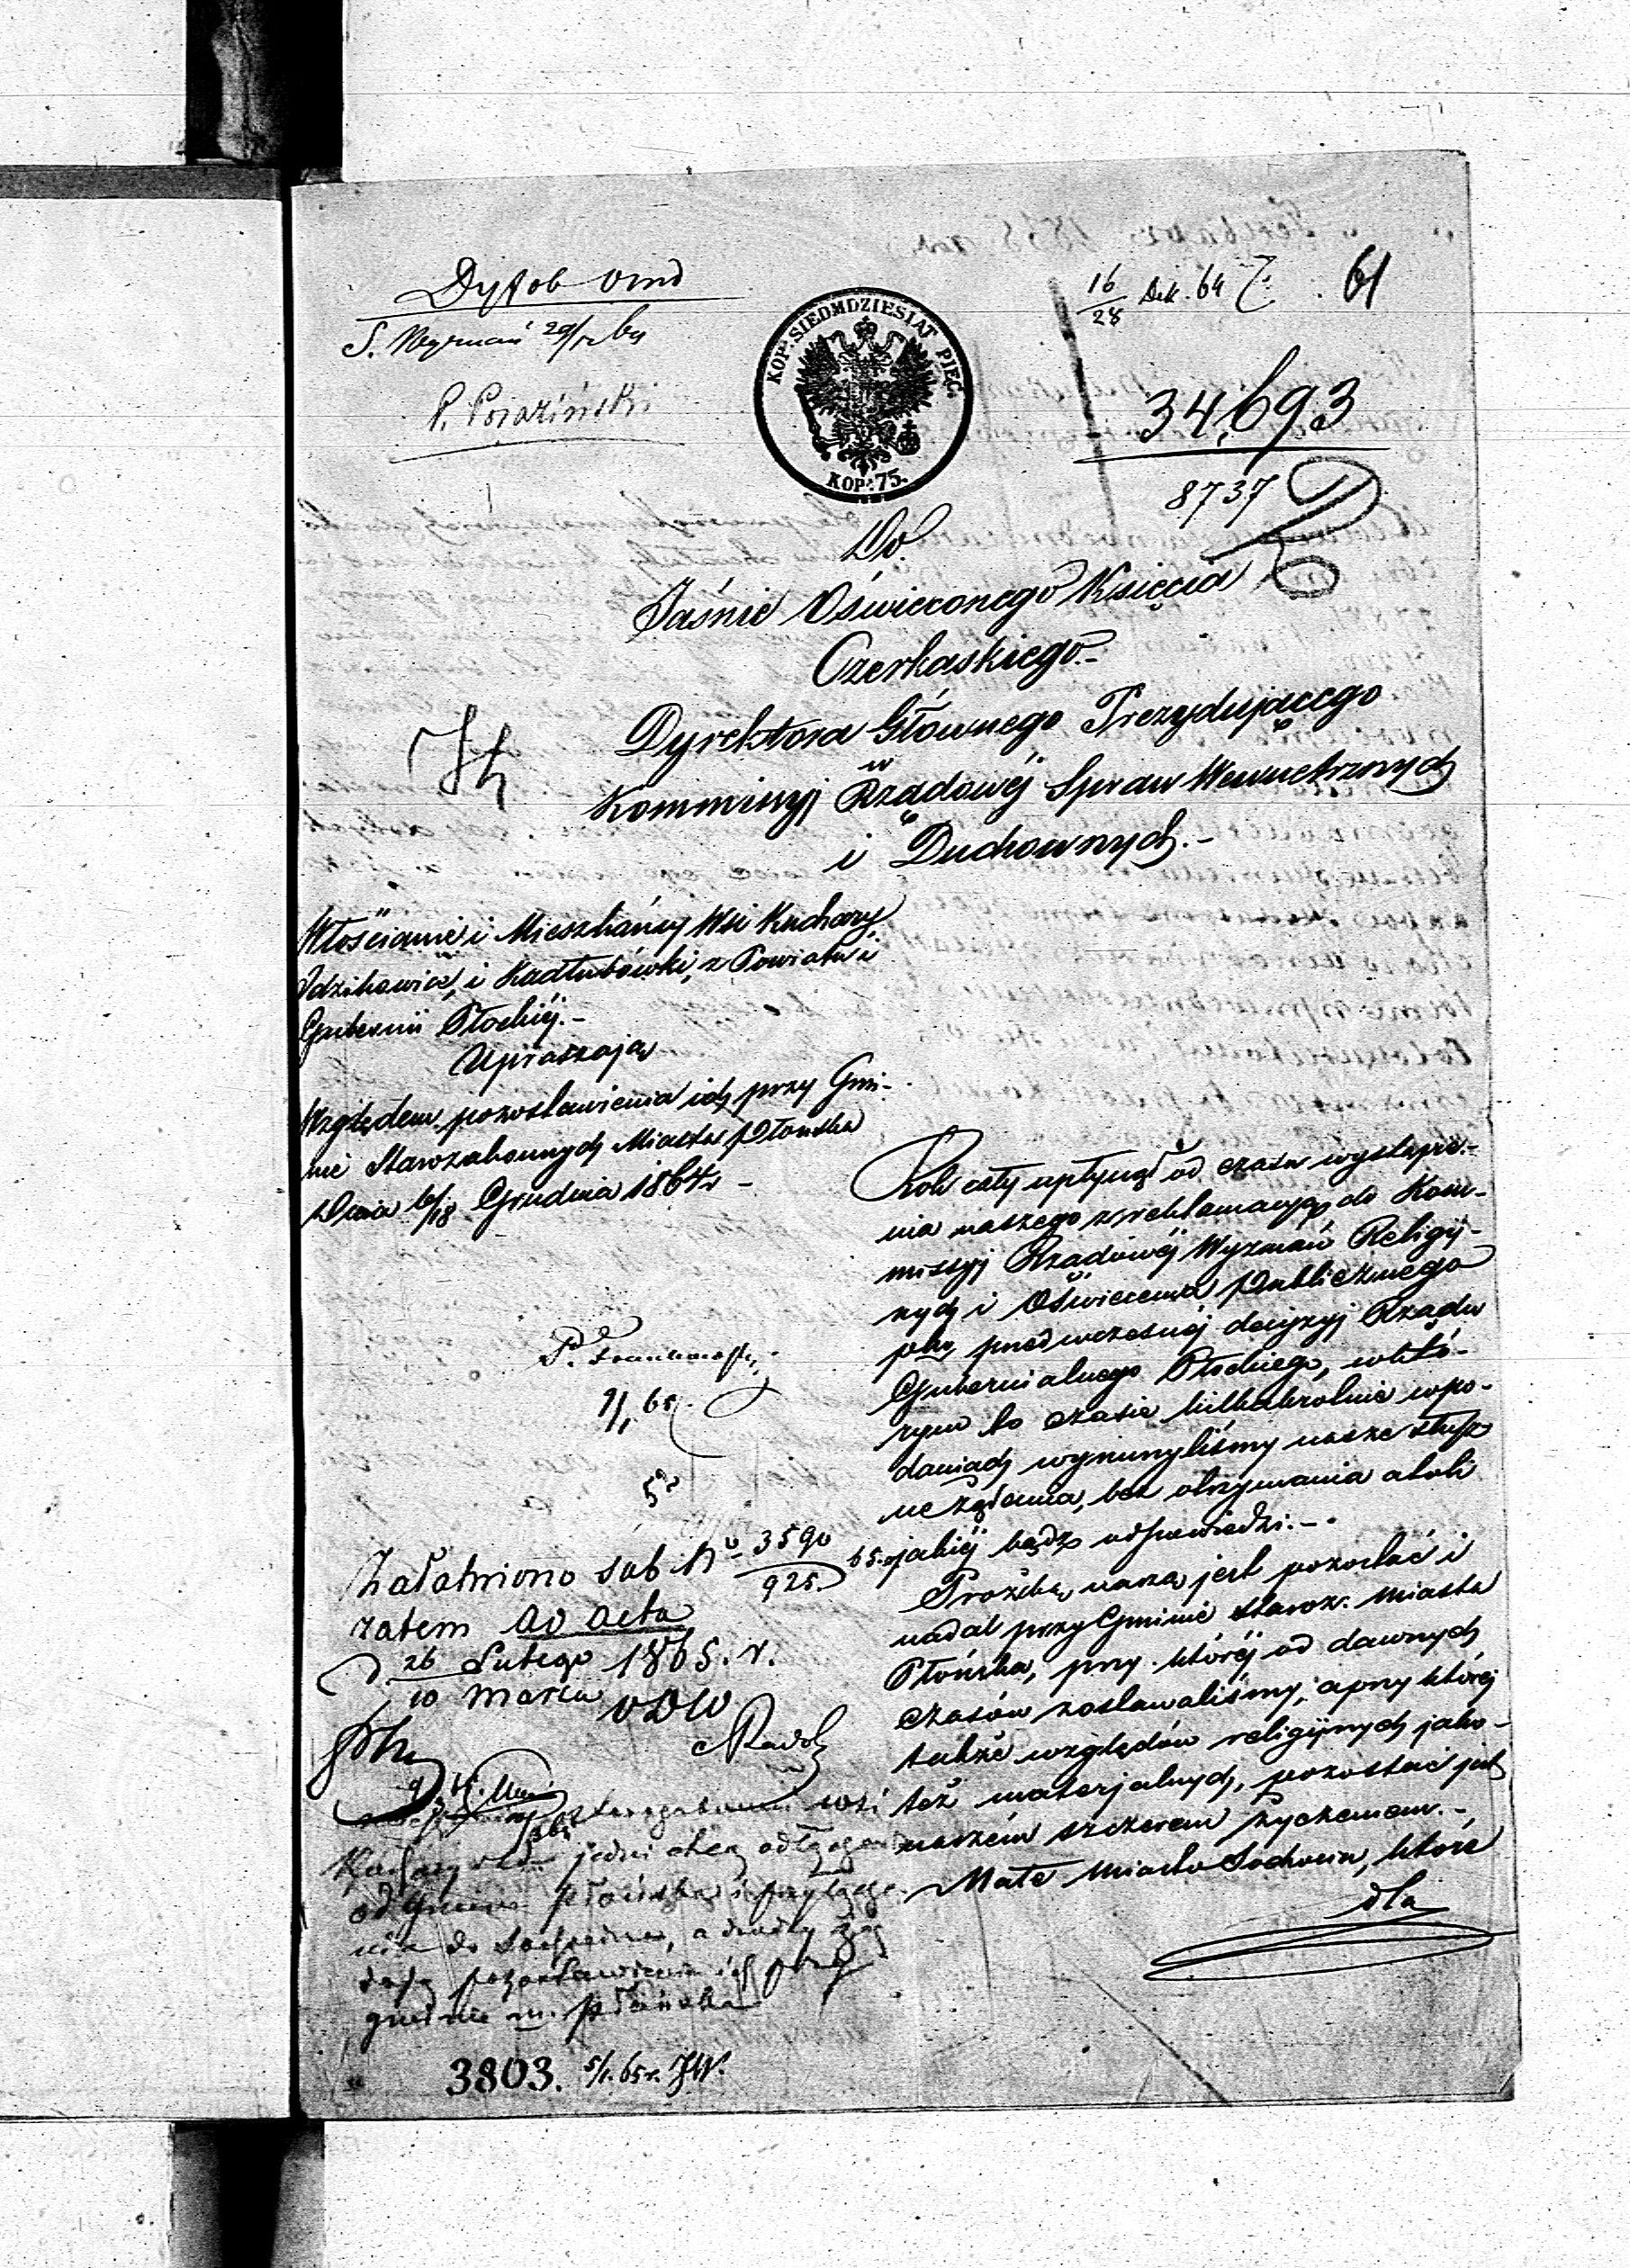 16/28 Dek. 64 61
S. Wyznań 29/12 64
P. Pojaziński
KOP: SIEDMDZIESIĄT PIĘĆ.
KOP: 75.
34,693
8737
Do
Jaśnie Oświeconego Księcia
Czerkaskiego.-
Dyrektora Głównego Prezydującego
w
Kommissyj Rządowéj Spraw Wewnętrznych
i Duchownych.-
Włościanie i Mieszkańcy Wsi Kuchary
Idzikowice, i Kadłubówki, z Powiatu i
Gubernii Płockiéj.-
Upraszają
Względem pozostawienia ich przy Gmi-
nie Starozakonnych Miasta Płońska
Dnia 6/18 Grudnia 1864 r -
Rok cały upłynął od czasu wystąpie-
nia naszego z reklamacyją do Kom-
missyj Rządowéj Wyznań Religij-
nych i Oświecenia Publicznego
pko przedwczesnéj decyzyj Rządu
Gubernialnego Płockiego, w któ-
rym to czasie kilkakrotnie w po-
daniach wynurzyliśmy nasze słusz
ne żądania, bez otrzymania atoli
jakiéj bądź odpowiedzi.-
Prośbą naszą jest pozostać i
nadal przy Gminie staroz. Miasta
Płońska, przy któréj od dawnych
czasów zostawaliśmy, a przy któréj
także względów religijnych jako-
też materjalnych, pozostać jest
naszém szczerem życzeniem.-
Małe Miasto Sochocin, które
dla
1/1 65
Załatwiono sub No 3590/925 65 r
zatem ad acta
d 26 Lutego/10 Marca 1865. r.
wsi
Kuchary jedni chcą odłączenia
od gminy Płońska i przyłącze
nia do Sochocina, a drudzy żą
dają pozostawienia ich przy
gminie m. Płońska
3803. 5/1. 65 r. JW.